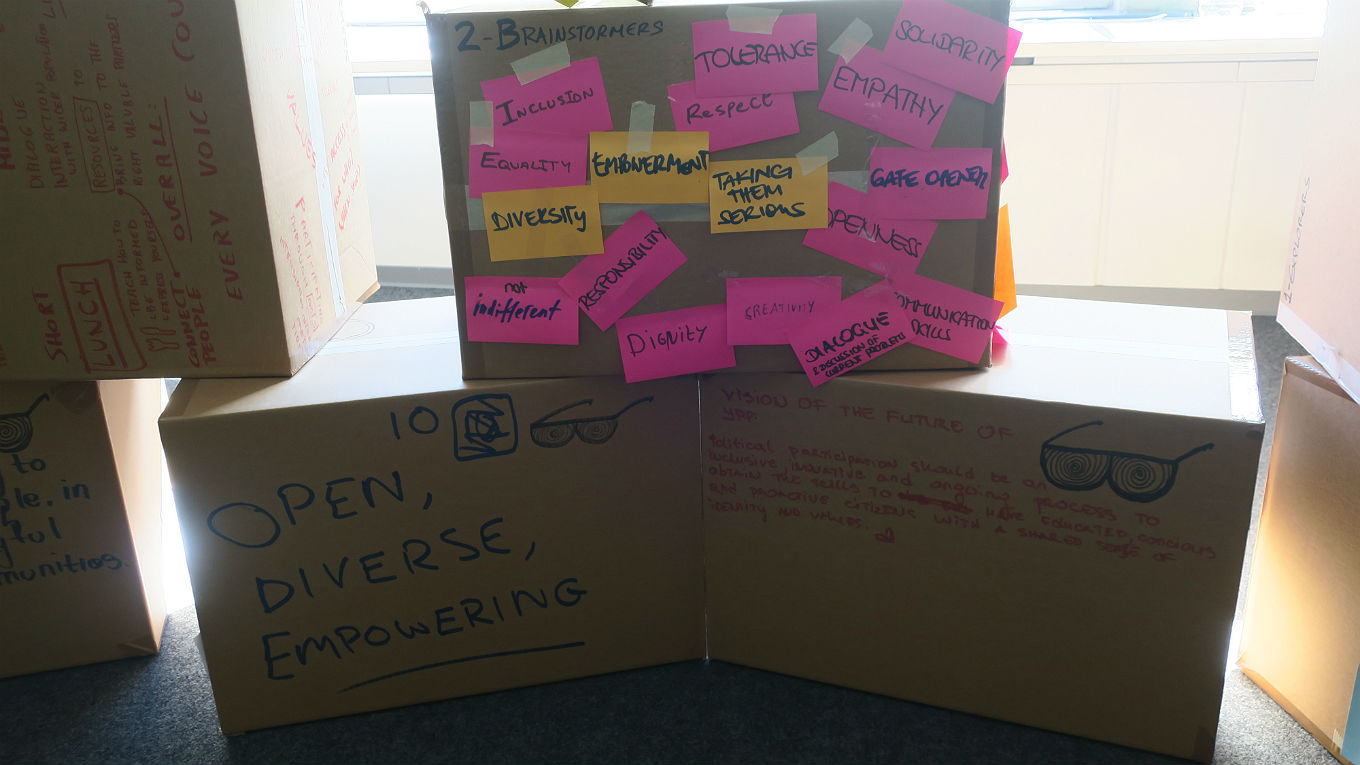 2-BRAINSTORMERS
TOLERANCE
SOLIDARITY
INCLUSION
Respect
EMPATHY
EQUALITY
EMPOWERMENT
TAKING
THEM
SERIOUS
GATE OPENER
DIVERSITY
OPENNESS
RESPONSIBILITY
not
indifferent
Dignity
CREATIVITY
DIALOGUE
& DISCUSSION OF
CURRENT PROBLEMS
COMMUNICATION
SKILLS
10
OPEN,
DIVERSE,
EMPOWERING
VISION OF THE FUTURE OF
YPP:
Political participation should be an
inclusive, inovative and ongoing process to
obtain the skills to have educated, concious
and proactive citizens with a shared sense of
identity and values.
DIALOGUE
INTERACTION
WITH WIDER
RESOURCES TO
BRING INFO TO THE
RIGHT VALUABLE PARTNER
OVERALL:
EVERY VOICE COU
TEACH HOW TO
BE INFORMED
EXPRESS YOURSELF
CONNECT
PEOPLE
SHORT
LUNCH
to
in
munities.
EXPLORERS